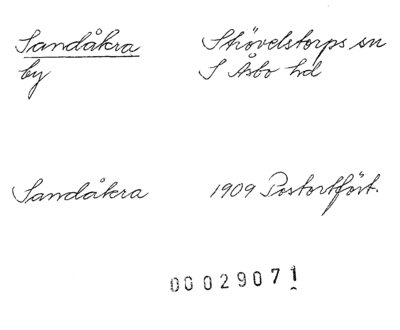 Sandåkra Strövelstorps sn
by S Åsbo hd
Sandåkra 1909 Postortfört.
00029071